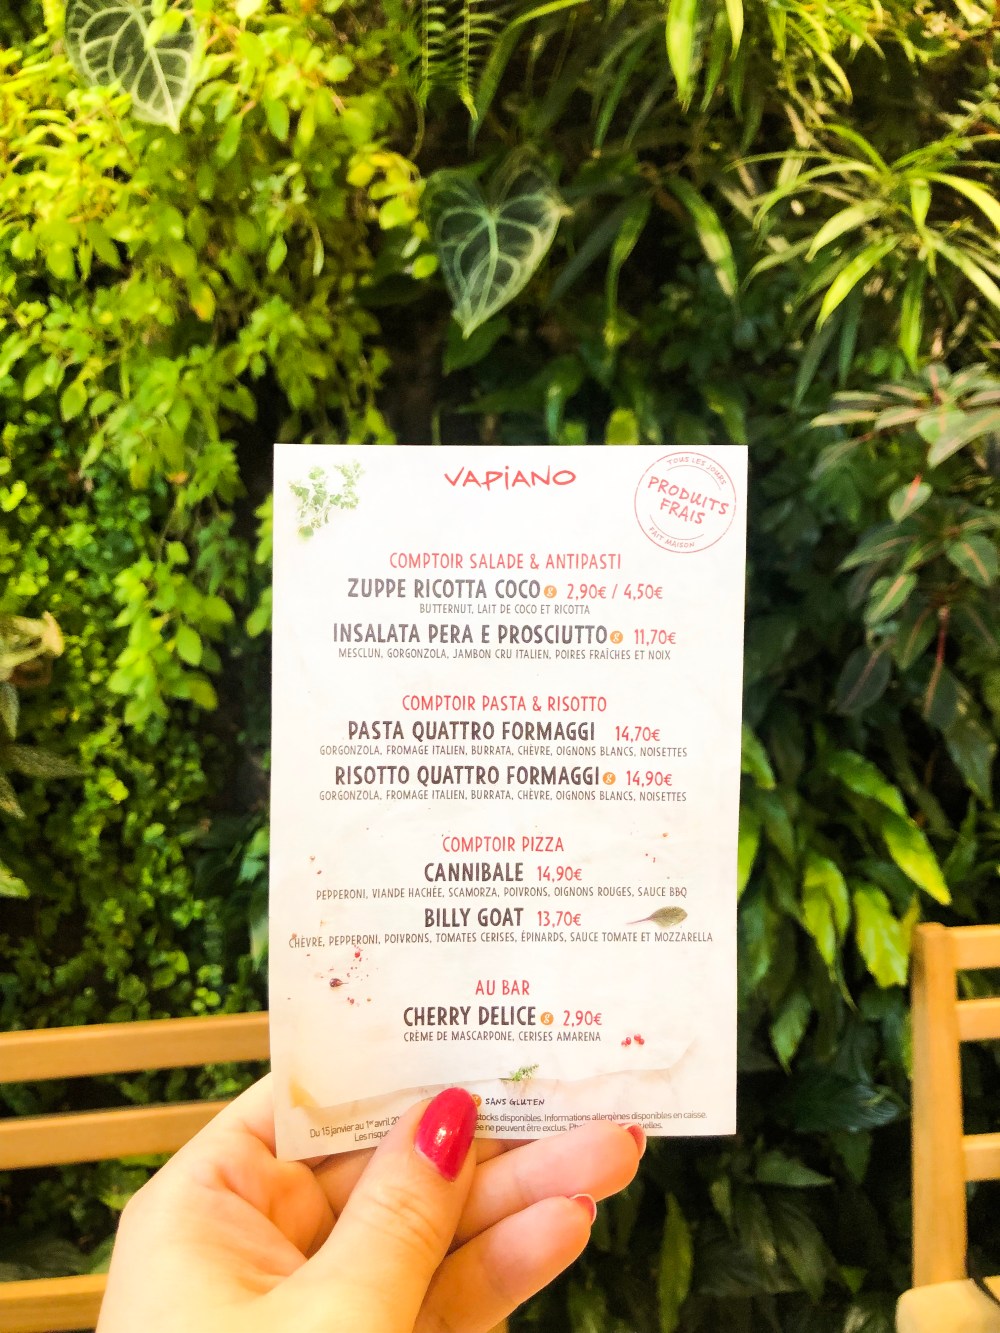 VAPIANO
TOUS LES JOURS
PRODUITS
FRAIS
FAIT MAISON
COMPTOIR SALADE & ANTIPASTI
ZUPPE RICOTTA COCO 2,90€ / 4,50€
BUTTERNUT, LAIT DE COCO ET RICOTTA
INSALATA PERA E PROSCIUTTO 11,70€
MESCLUN, GORGONZOLA, JAMBON CRU ITALIEN, POIRES FRAÎCHES ET NOIX
COMPTOIR PASTA & RISOTTO
PASTA QUATTRO FORMAGGI 14,70€
GORGONZOLA, FROMAGE ITALIEN, BURRATA, CHÈVRE, OIGNONS BLANCS, NOISETTES
RISOTTO QUATTRO FORMAGGI 14,90€
GORGONZOLA, FROMAGE ITALIEN, BURRATA, CHÈVRE, OIGNONS BLANCS, NOISETTES
COMPTOIR PIZZA
CANNIBALE 14,90€
PEPPERONI, VIANDE HACHÉE, SCAMORZA, POIVRONS, OIGNONS ROUGES, SAUCE BBQ
BILLY GOAT 13,70€
CHÈVRE, PEPPERONI, POIVRONS, TOMATES CERISES, ÉPINARDS, SAUCE TOMATE ET MOZZARELLA
AU BAR
CHERRY DELICE 2,90€
CRÈME DE MASCARPONE, CERISES AMARENA
SANS GLUTEN
Du 15 janvier au 1er avril stocks disponibles. Informations allergènes disponibles en caisse.
Les ne peuvent être exclus.